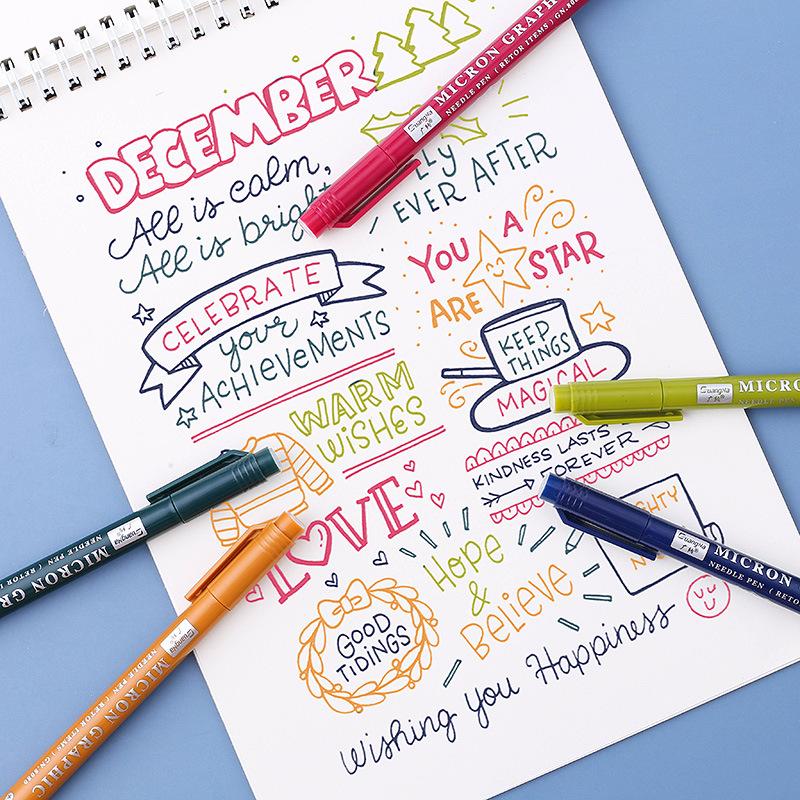 DECEMBER
All is calm,
All is bright
EVER AFTER
YOU A
ARE STAR
CELEBRATE
your
ACHIEVEMENTS
KEEP
THINGS
MAGICAL
WARM
WISHES
KINDNESS LASTS
FOREVER
LOVE
Hope
&
Believe
GOOD
TIDINGS
Wishing you Happiness
MICRON GRAPH
NEEDLE PEN ( RETOR ITEMS ) GN.80
Guangna
MICRO
NEEDLE PEN
Guangna
MICRON
NEEDLE PEN ( RETO
Guangna
MICRON GR
NEEDLE PEN ( RETOR I
Guangna
MICRON GRAPHIC
NEEDLE PEN ( RETOR ITEMS ) GN.8080
Guangna